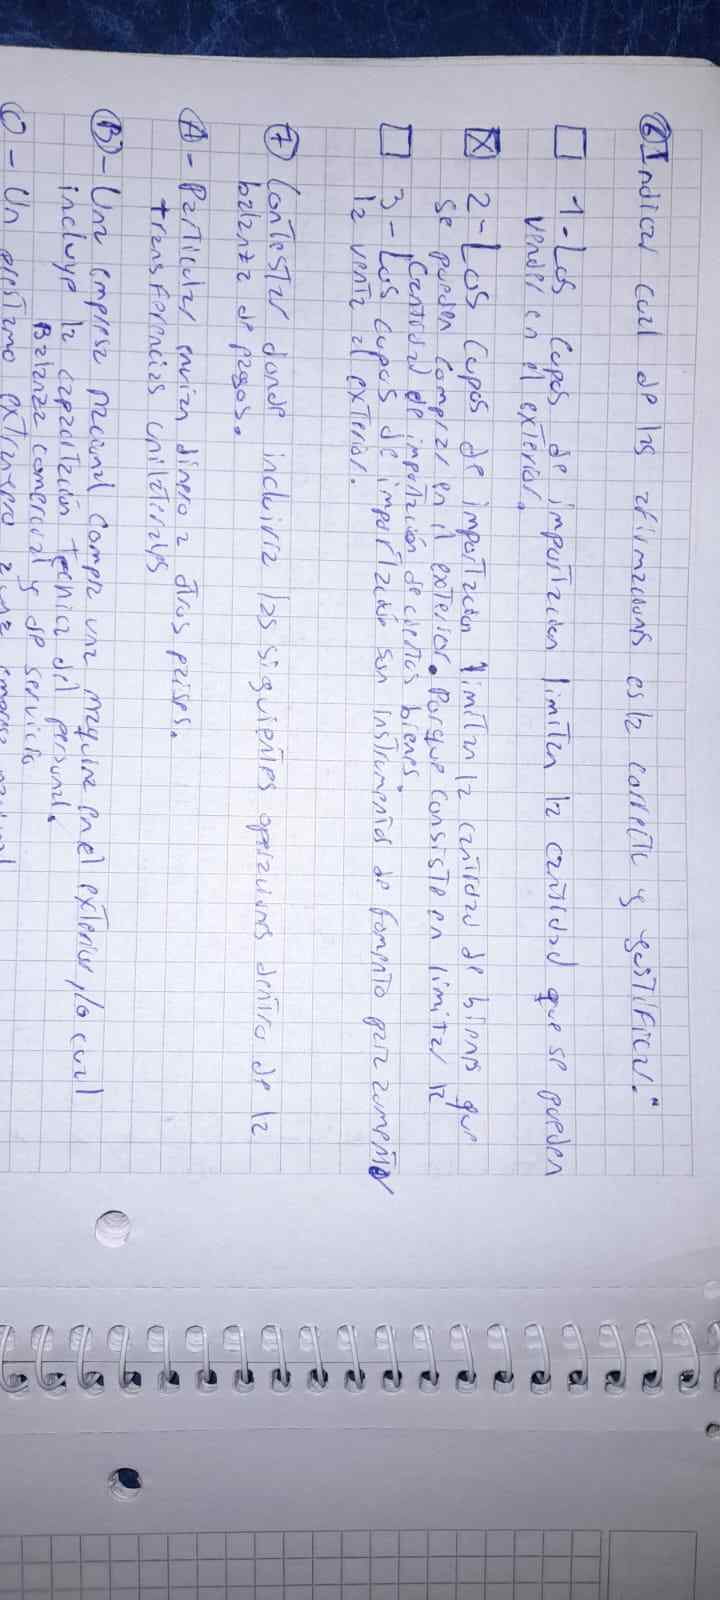 6 Indicar cual de las afirmaciones es la correcta y justificar."
1-Los cupos de importacion limitan la cantidad que se pueden
vender en el exterior.
2-Los cupos de importacion limitan la cantidad de bienes que
se pueden comprar en el exterior. Porque consiste en limitar la
cantidad de importación de ciertos bienes
3-Los cupos de importación son instrumentos de fomento para aumentar
la venta al exterior.
7 Contestar donde incluiria las siguientes operaciones dentro de la
balanza de pagos.
A- Particular envian dinero a otros paises.
transferencias unilaterales
B- Una empresa nacional compra una maquina en el exterior, lo cual
incluye la capacitación tecnica del personal.
Balanza comercial y de servicio
C- Un prestamo extranjero a una empresa nacional